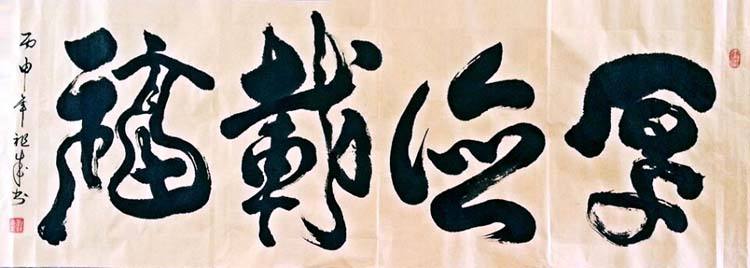 厚德載福
丙申年祖成书